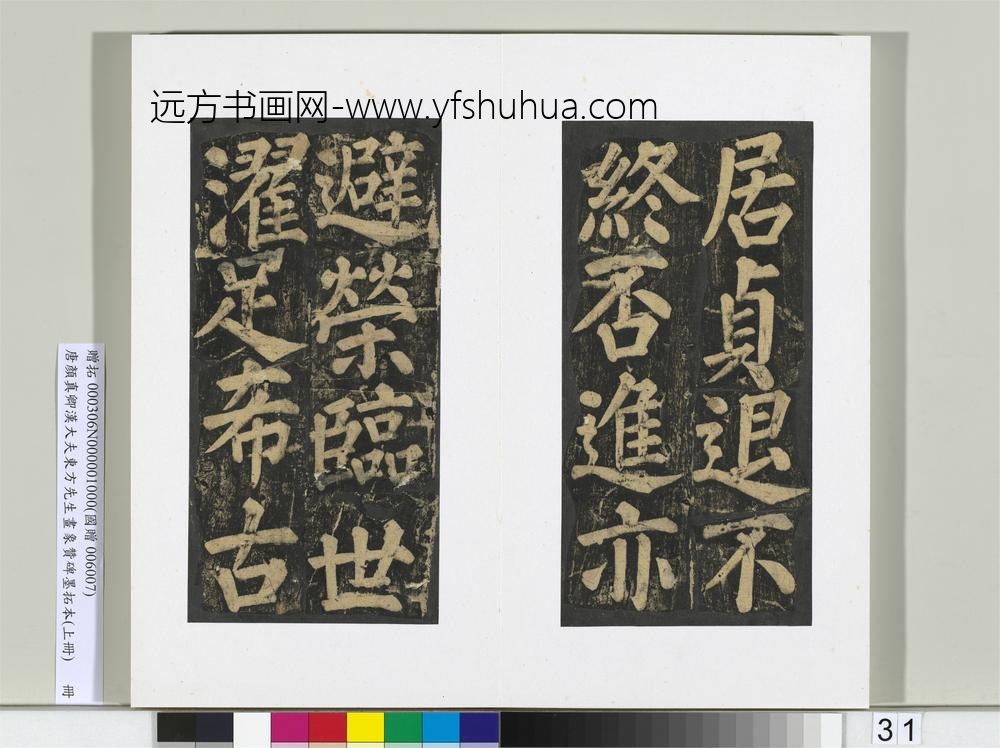 远方书画网-www.yfshuhua.com
居貞退不
終否進亦
避榮臨世
濯足希古
贈拓 000306N000001000(國贈 006007)
唐顏真卿漢大夫東方先生畫象贊碑墨拓本(上冊) 冊
31